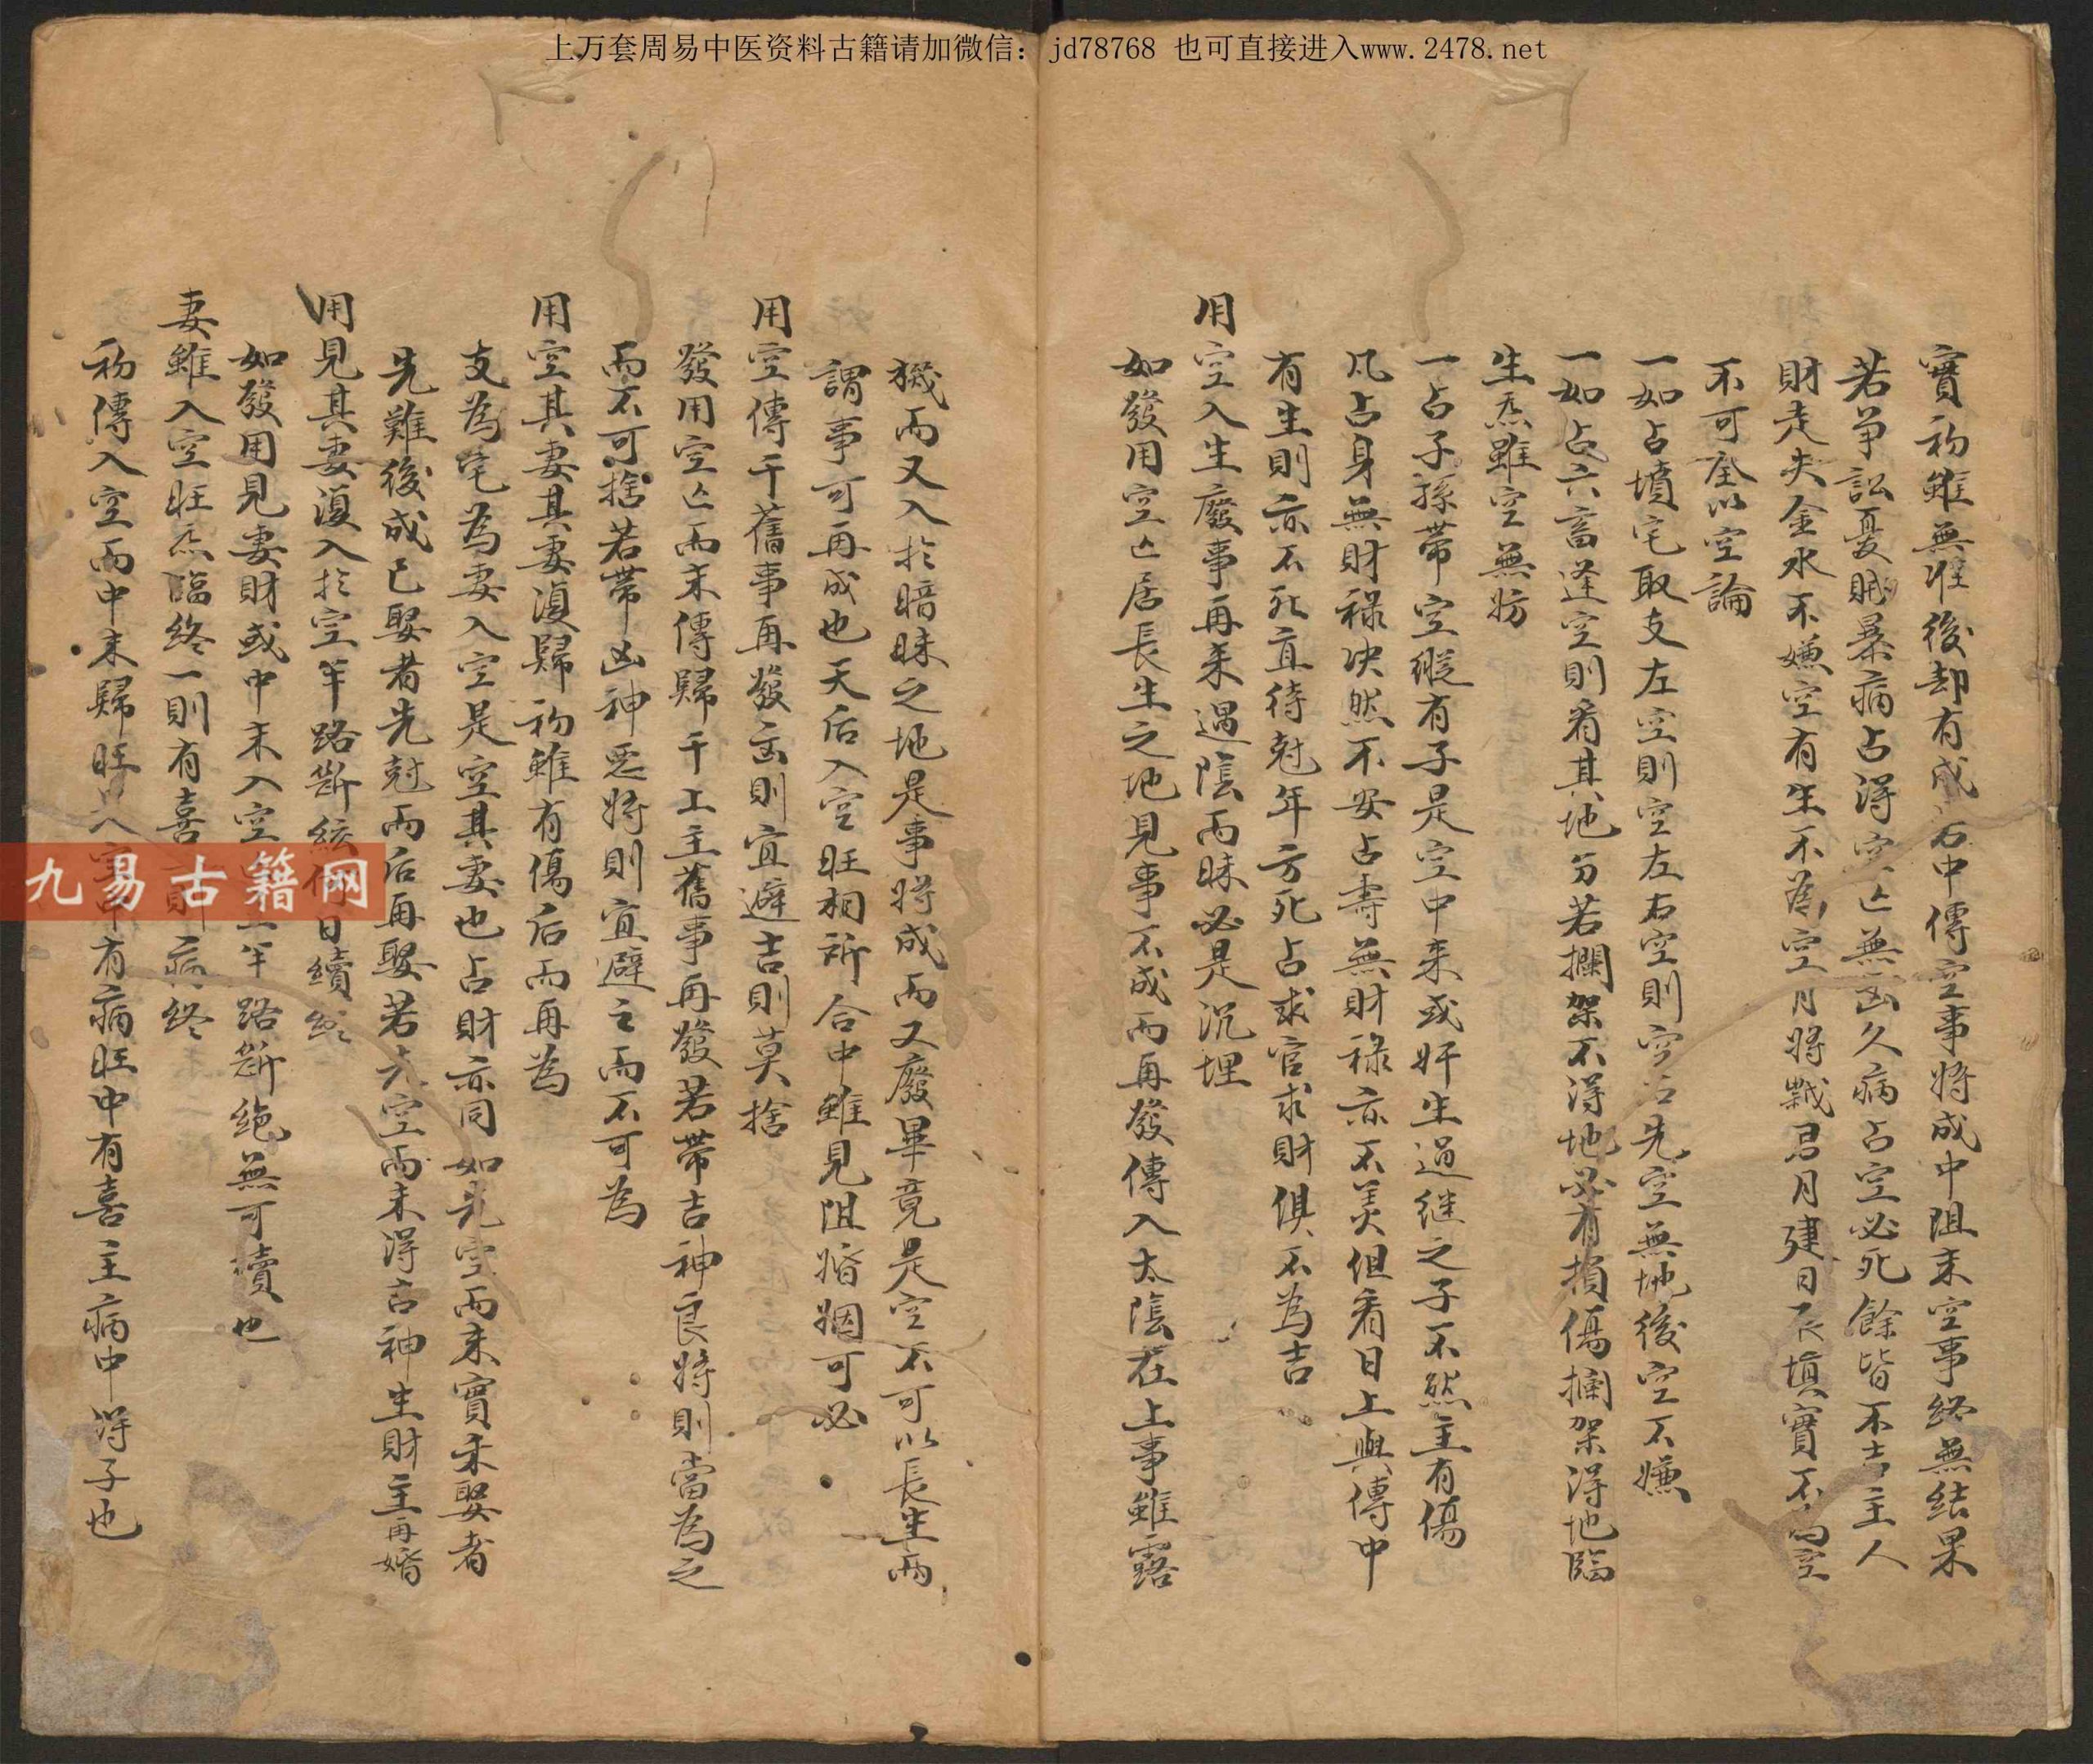 上万套周易中医资料古籍请加微信：jd78768 也可直接进入www.2478.net
實初雖無准後却有成若中傳空事將成中阻末空事終無結果
若爭訟憂賊暴病占得空亡無凶久病占空必死餘皆不吉主人
財走失金水不嫌空有生不為空月將歲君月建日辰填實不為空
不可全以空論
一如占墳宅取支左空則空左右空則空右先空無地後空不嫌
一如占六畜逢空則看其地分若攔架不得地必有損傷攔架得地臨
生炁雖空無妨
一占子孫帶空縱有子是空中来或奸生過継之子不然主有傷
凡占身無財禄决然不安占壽無財禄亦不美但看日上與傳中
有生則亦不死直待尅年方死占求官求財俱不為吉
用空入生廢事再来遇陰而昧必是沉埋
如發用空亡居長生之地見事不成而再發傳入太陰在上事雖露
機而又入於暗昧之地是事將成而又廢畢竟是空不可以長生而
謂事可再成也天后入空旺相祈合中雖見阻婚姻可必
用空傳干舊事再發凶則宜避吉則莫捨
發用空亡而末傳歸干上主舊事再發若帶吉神良將則當為之
而不可捨若帶凶神惡將則宜避之而不可為
用空其妻其妻復歸初雖有傷后而再為
支為宅為妻入空是空其妻也占財亦同如先空而末實未娶者
先難後成已娶者先尅而后再娶若先空而末得吉神生財主再婚
用見其妻復入於空半路斷絃日續
如發用見妻財或中末入空半路斷絶無可續也
妻雖入空旺炁臨終一則有喜病終
初傳入空而中末歸旺中有病旺中有喜主病中得子也
九易古籍网